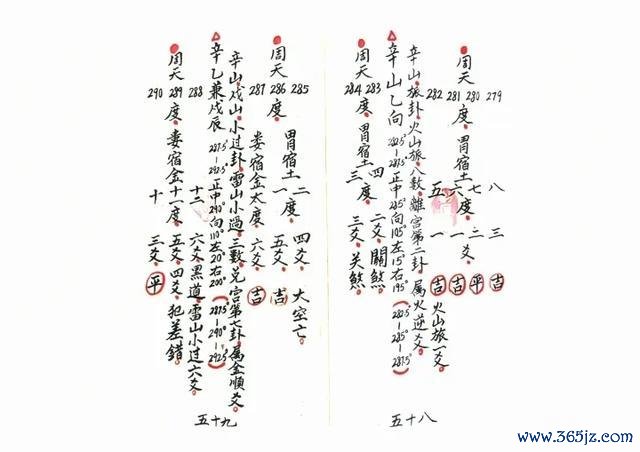 279 八 三 吉
周天 280 度 胃宿土 七度 二爻 平
281 六 一 吉 火山旅一爻
282 五 一 吉
辛山旅卦火山旅八數離宮第二卦属火逆爻
辛山乙向282.5°-287.5°正中285°向105°左15°右195°(282.5°-285°-287.5°)
周天 283 度 胃宿土 四度 二爻關煞
284 三 三爻关煞
五十八
285 二 四爻 大空亡
周天 286 度 胃宿土一度 五爻 吉
287 婁宿金太度 六爻 吉
辛山戍山小过卦雷山小過三數兑宮第七卦属金順爻
辛乙兼戍辰287.5°-292.5°正中290°向110°左20°右200°(287.5°-290°-292.5°)
周天 288 十二 六爻黑道雷山小过六爻
289 度 婁宿金十一度 五爻四爻犯差錯
290 十 三爻 平
五十九
www.365jz.com